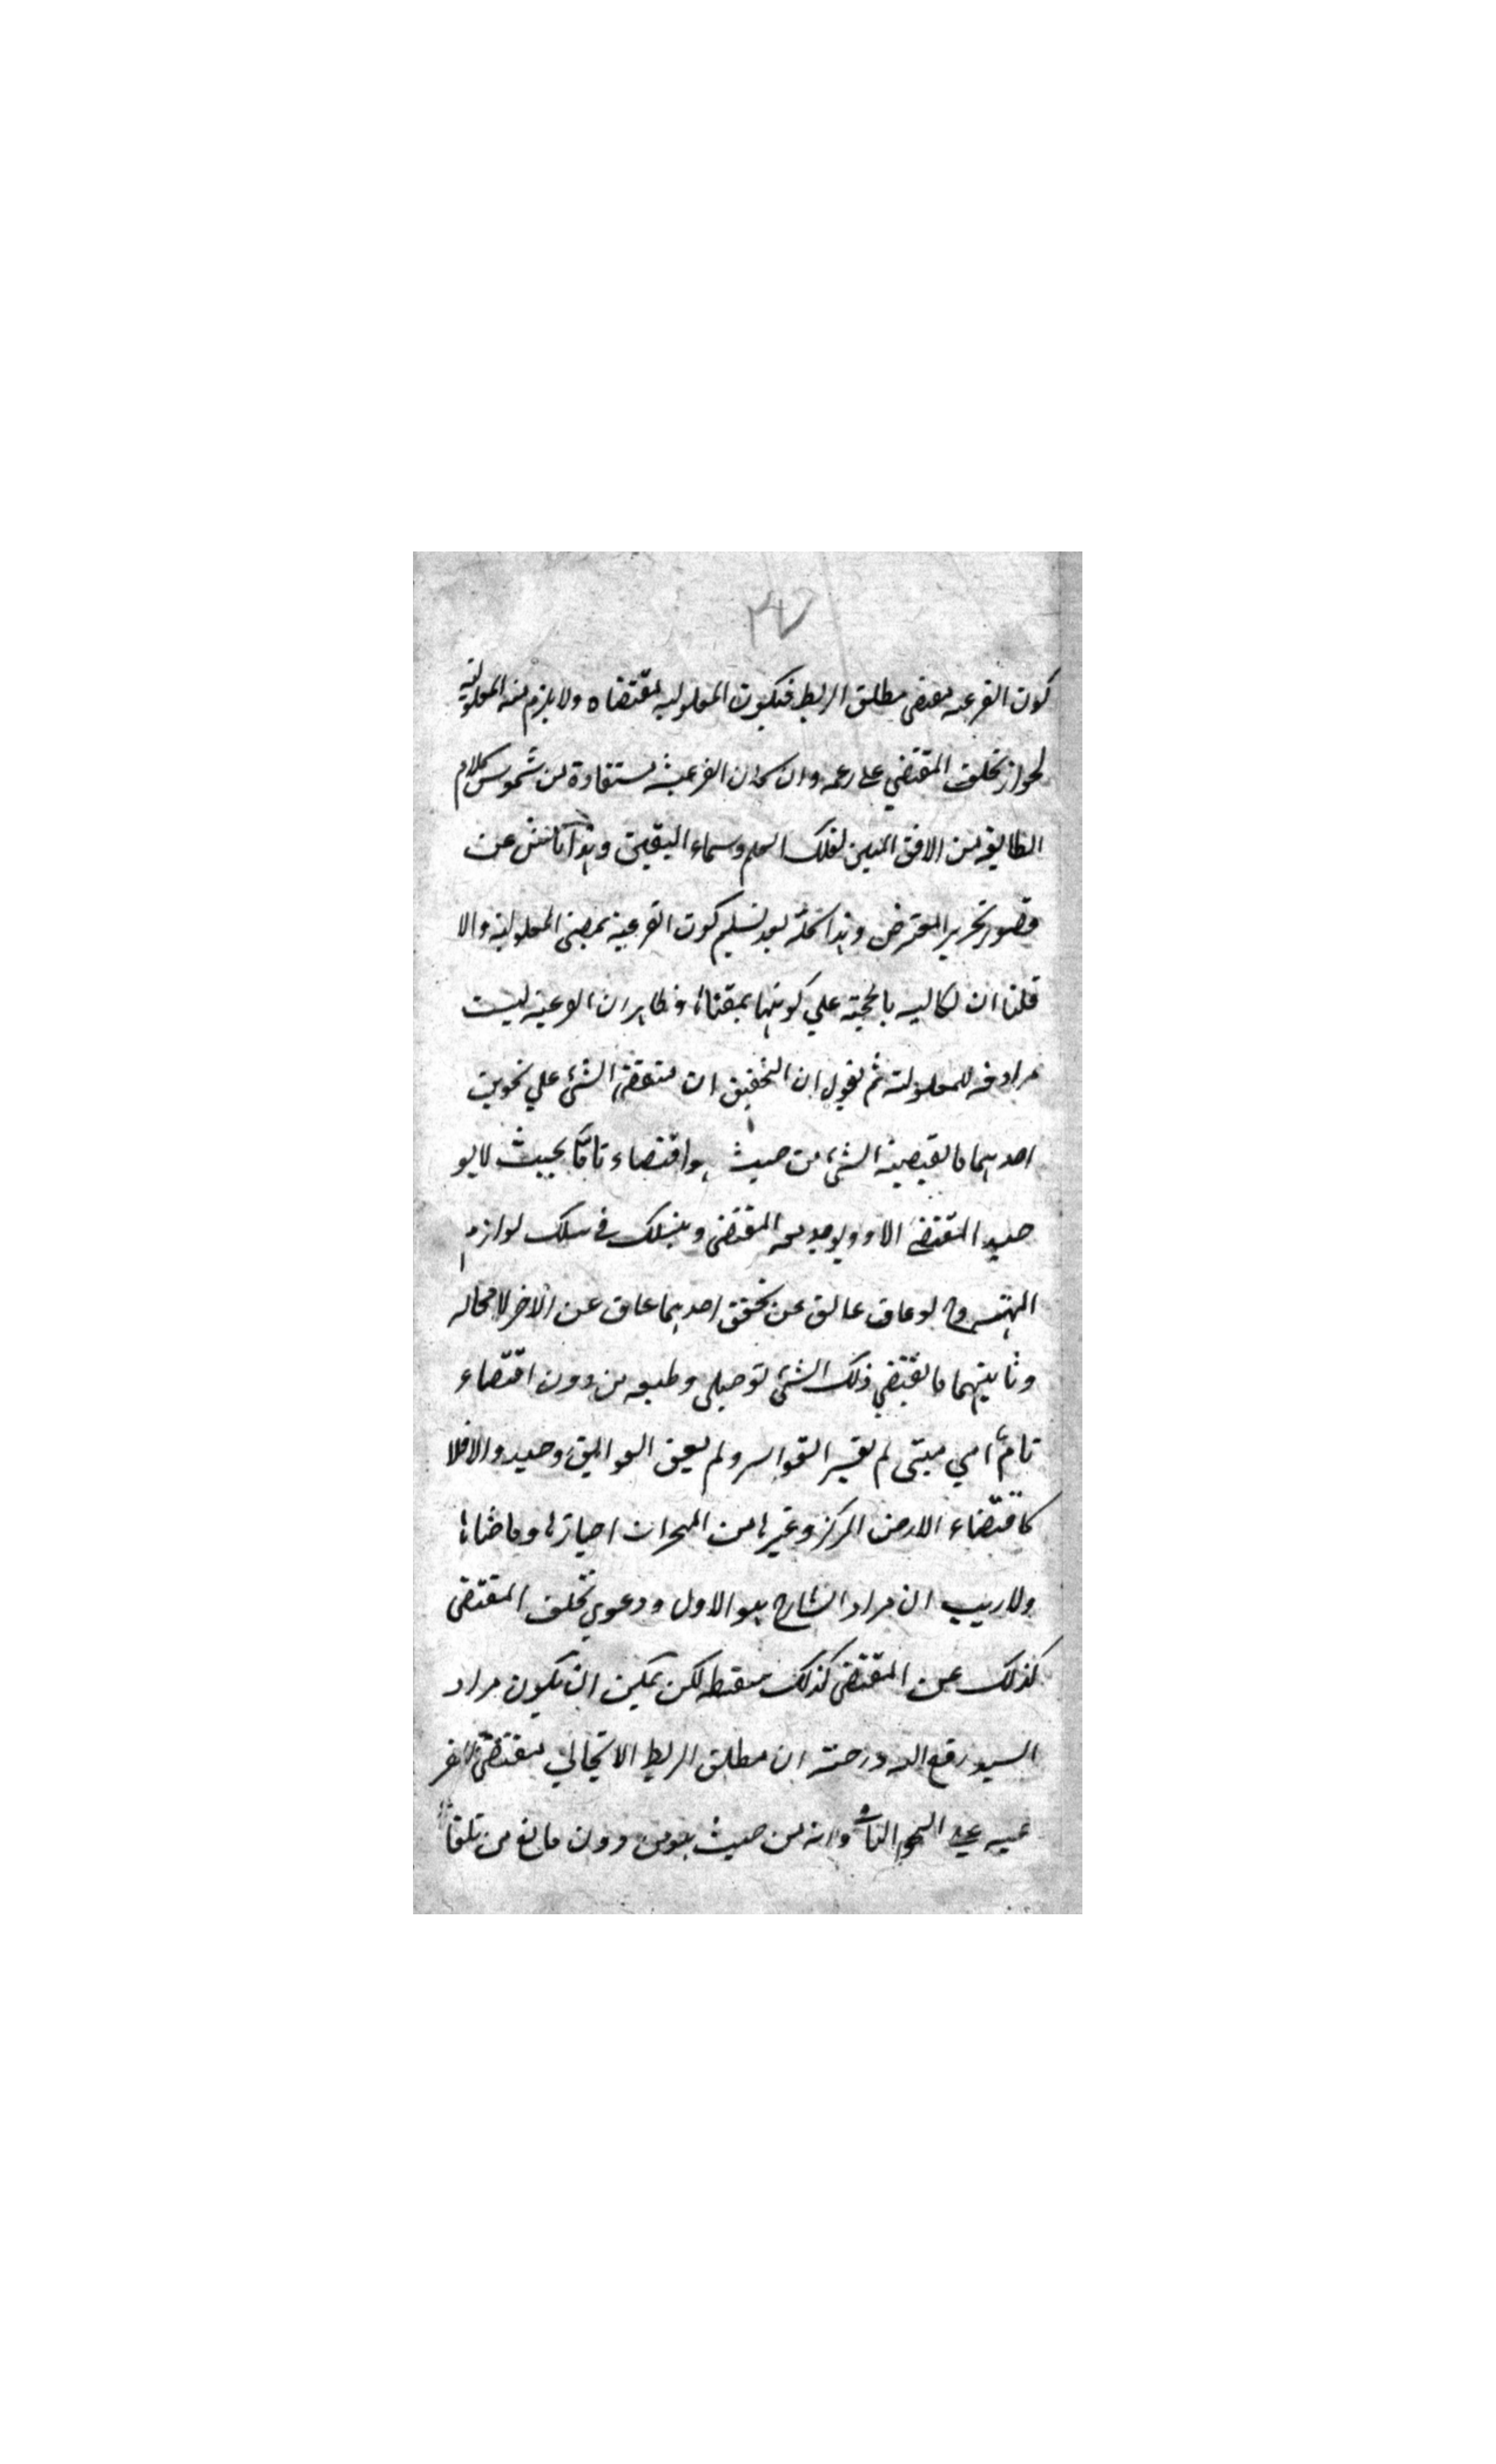 ٣٧
كون الفرعيه مقتضى مطلق الربط فيكون المعلوليه مقتضاه ولا يلزم منه المعلوليه
لجواز تخلف المقتضي على زعمه وان كان الفرعية مستفادة من شموس كلام
الطايفه من الافق المبين لفلك العلم وسماء اليقين وهذا ناش عن
قصور تحرير المعترض وهذا كله بعد تسليم كون الفرعية بمعنى المعلولية والا
قلنا ان نطالبه بالحجة علي كونها بمعناها فظاهر ان الفرعية ليست
مرادفه للمعلولية ثم نقول ان التحقيق ان مقتضى الشئ علي نحوين
احدهما ما يقتضيه الشئ من حيث هو اقتضاء تامًا بحيث لا يو
جد المقتضي الا ويوجد معه المقتضى وينسلك في سلك لوازم
لو عاق عائق عن تحقق احدهما عاق عن الاخر لا محاله
وثانيهما ما يقتضي ذلك الشئ لو خلى وطبعه من دون اقتضاء
تام اي متى لم يقسر القواسر ولم يعق العوايق وجد والا فلا
كاقتضاء الارض المركز وغيرها من احيازها وما ضاهاها
ولا ريب ان مراد الشارح هو الاول ودعوي تخلف المقتضى
كذلك عن المقتضى كذلك سفسطه لكن يمكن ان يكون مراد
السيد رفع الله درجته ان مطلق الربط الايجابي مقتضى للفر
عيه على النحو الثاني وانه من حيث هو من دون مانع من تلقاء